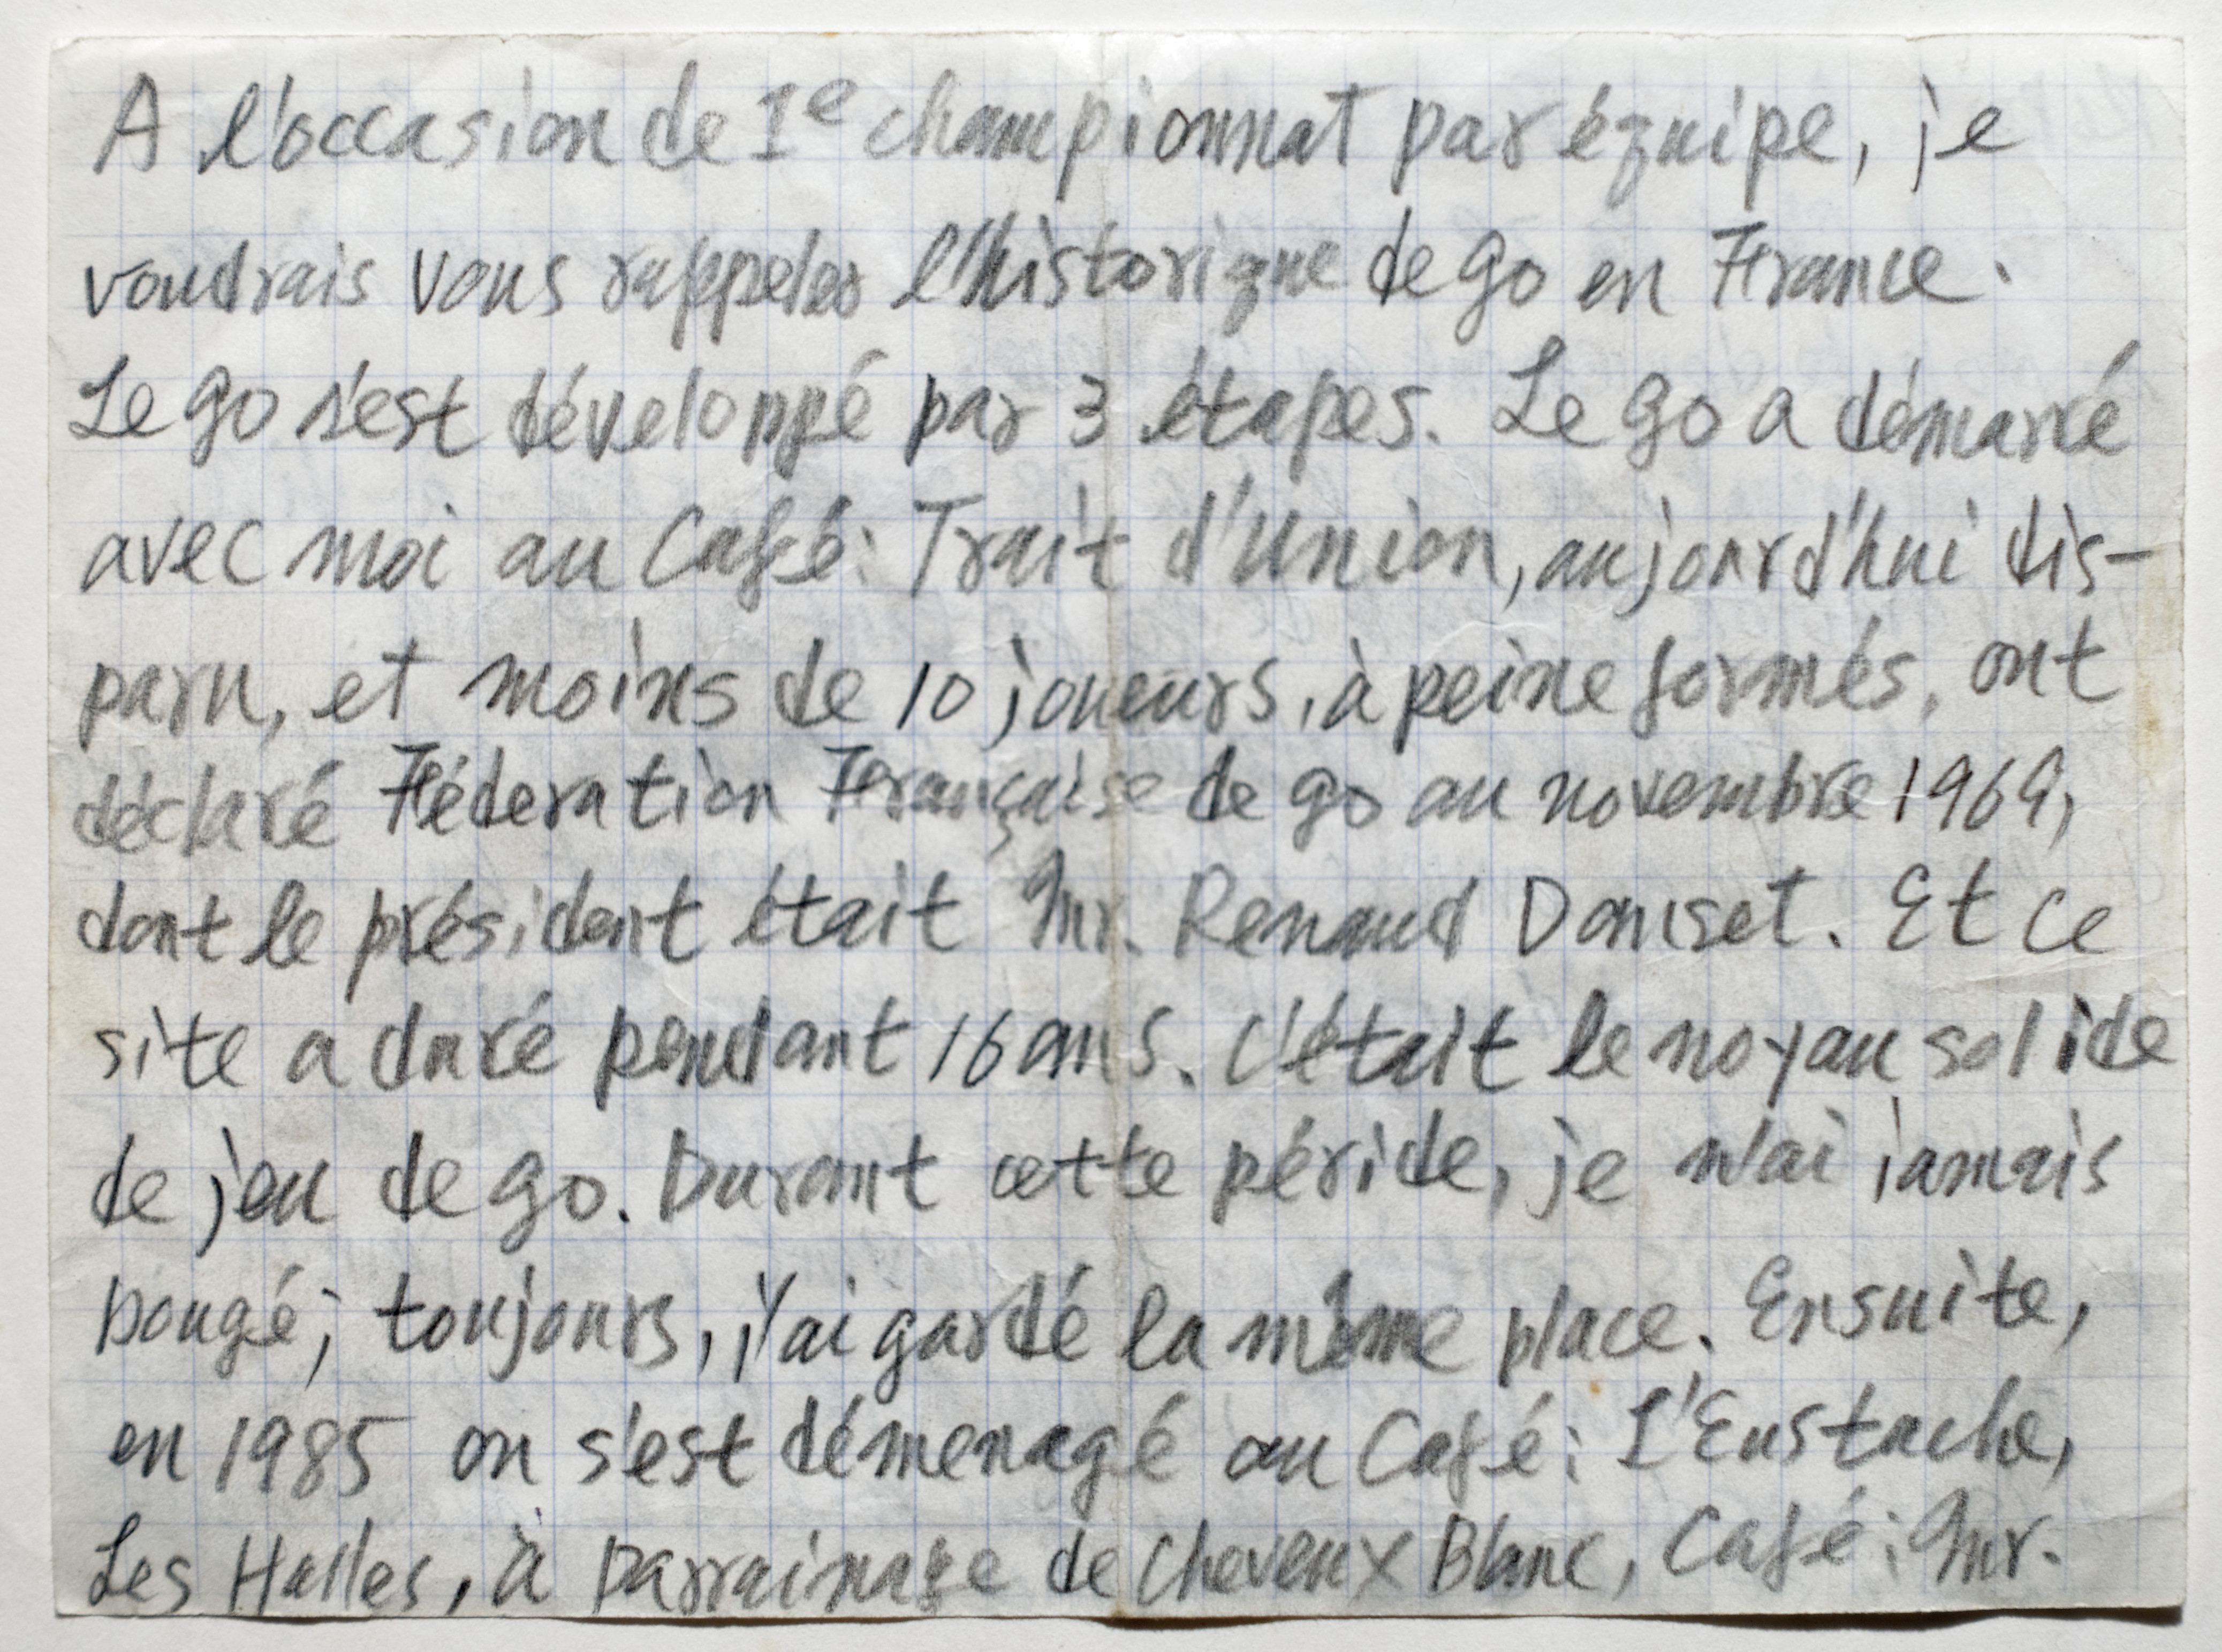 A l'occasion de 1e championnat par équipe, je
voudrais vous rappeler l'historique de go en France.
Le go s'est développé par 3 étapes. Le go a démarré
avec moi au Café: Trait d'Union, aujourd'hui dis-
paru, et moins de 10 joueurs, à peine formés, ont
déclaré Féderation Française de go au novembre 1969,
dont le président était Mr. Renaud Donset. Et ce
site a duré pendant 16 ans. C'était le noyau solide
de jeu de go. Durant cette péride, je n'ai jamais
bougé; toujours, j'ai gardé la même place. Ensuite,
en 1985 on s'est démenagé au Café: L'Eustache,
Les Halles, à parrainage de Cheveux Blanc, Café: Mr.